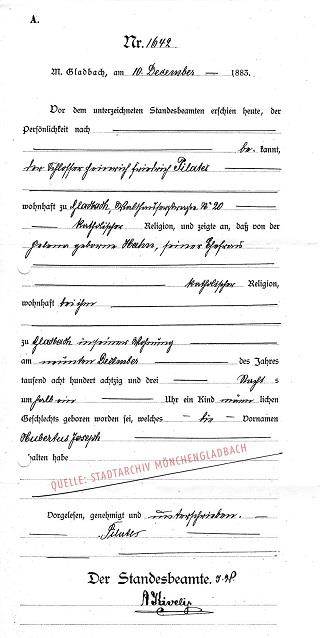 A.
Nr. 1642.
M. Gladbach, am 10. December 1883.
Vor dem unterzeichneten Standesbeamten erschien heute, der
Persönlichkeit nach
be kannt,
der Schlosser Heinrich Friedrich Pilates
wohnhaft zu Gladbach, Waldhausenerstrasse No 20
katholischer Religion, und zeigte an, daß von der
Helena geborne Hahn, seiner Ehefrau
katholischer Religion,
wohnhaft bei ihm
zu Gladbach in seiner Wohnung
am neunten December des Jahres
tausend acht hundert achtzig und drei Nachts
um halb ein Uhr ein Kind männlichen
Geschlechts geboren worden sei, welches die Vornamen
Hubertus Joseph
halten habe
QUELLE: STADTARCHIV MÖNCHENGLADBACH
Vorgelesen, genehmigt und unterschrieben.
Pilates
Der Standesbeamte.